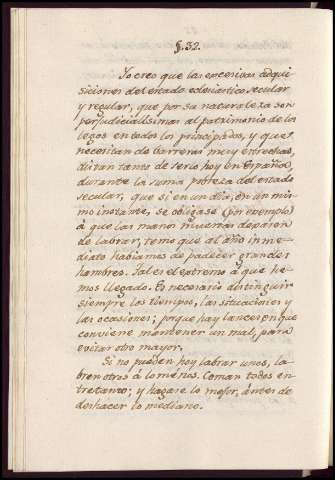 §. 32.
Yo creo que las excesivas adqui-
siciones del estado eclesiastico secular
y regular, que por su naturaleza son
perjudicialisimas al patrimonio de los
legos en todos los principados, y que
necesitan de barreras muy estrechas,
distan tanto de serlo hoy en España,
durante la suma pobreza del estado
secular, que si en un dia, en un mis-
mo instante, se obligase (por exemplo)
á que las manos muertas dexasen
de labrar, temo que al año inme-
diato habiamos de padecer grandes
hambres. Tal es el extremo á que he-
mos llegado. Es necesario distinguir
siempre los tiempos, las situaciones y
las ocasiones; porque hay lances en que
conviene mantener un mal, para
evitar otro mayor.
Si no pueden hoy labrar unos, la-
bren otros á lo ménos. Coman todos en-
tretanto; y hagase lo mejor, ántes de
deshacer lo mediano.